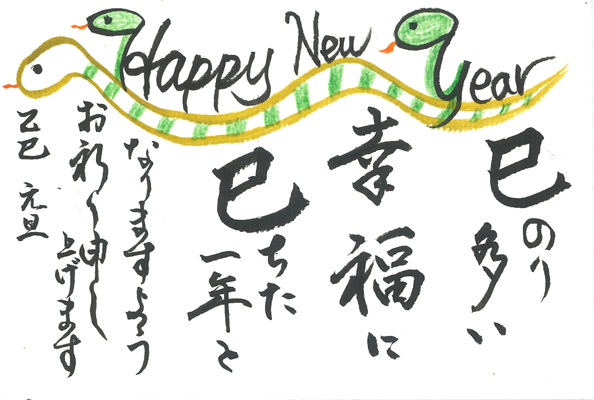 Happy New Year
巳のり多い
幸福に
巳ちた
一年と
なりますよう
お祈り申し
上げます
乙巳 元旦